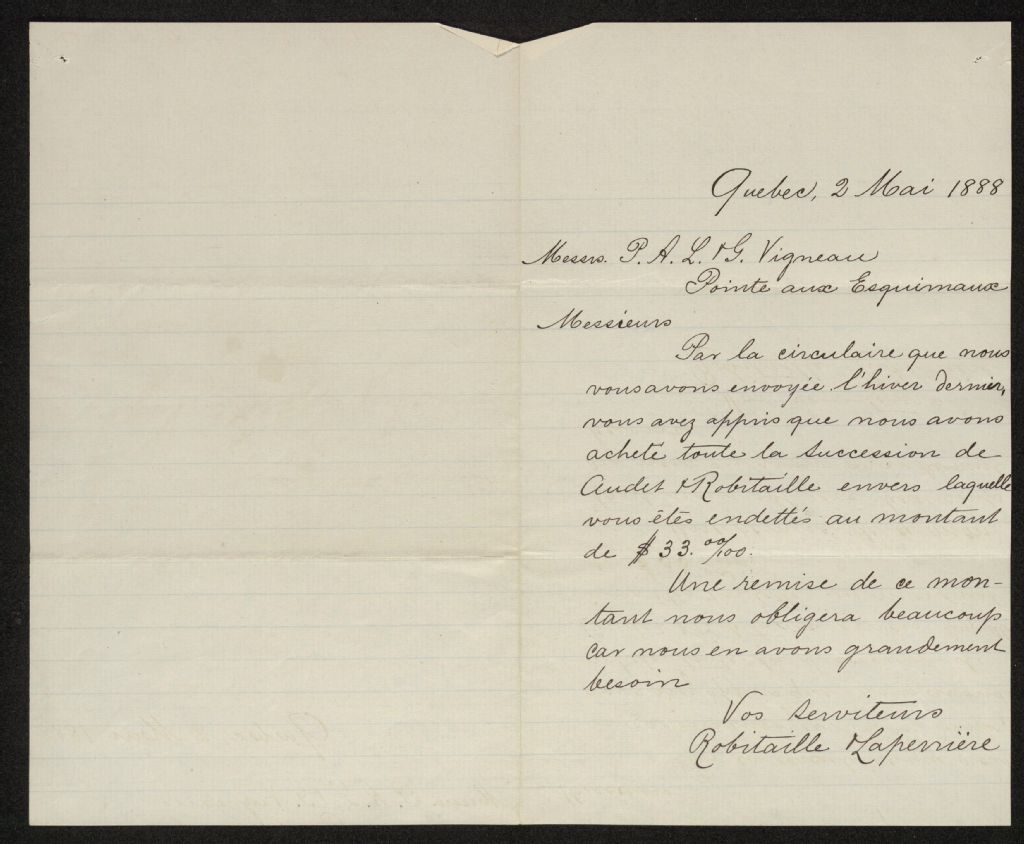 Quebec, 2 Mai 1888
Messrs. P. A. L. & G. Vigneau
Pointe aux Esquimaux
Messieurs
Par la circulaire que nous
vous avons envoyée l'hiver dernier,
vous avez appris que nous avons
acheté toute la succession de
Audet & Robitaille envers laquelle
vous êtes endettés au montant
de $33.00/100.
Une remise de ce mon-
tant nous obligera beaucoup
car nous en avons grandement
besoin
Vos serviteurs
Robitaille & Laperrière